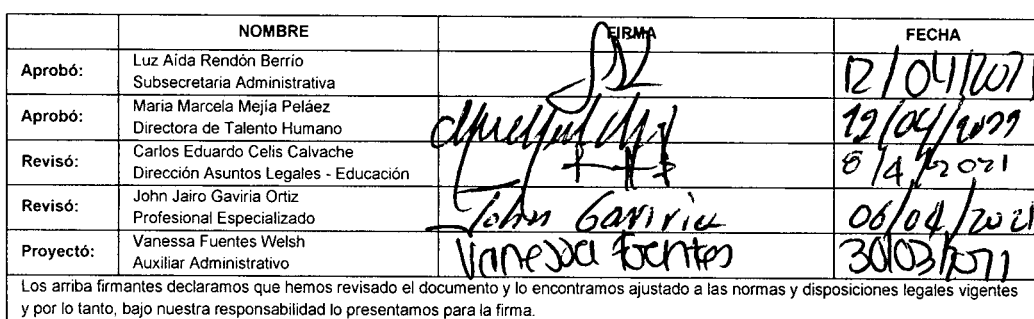 NOMBRE FIRMA FECHA
Aprobó: Luz Aída Rendón Berrio
Subsecretaria Administrativa 12/04/2021
Aprobó: Maria Marcela Mejía Peláez
Directora de Talento Humano
Revisó: Carlos Eduardo Celis Calvache
Dirección Asuntos Legales - Educación 8/4/2021
Revisó: John Jairo Gaviria Ortiz
Profesional Especializado John Gaviria 06/04/2021
Proyectó: Vanessa Fuentes Welsh
Auxiliar Administrativo Vanessa Fuentes 30/03/2021
Los arriba firmantes declaramos que hemos revisado el documento y lo encontramos ajustado a las normas y disposiciones legales vigentes
y por lo tanto, bajo nuestra responsabilidad lo presentamos para la firma.